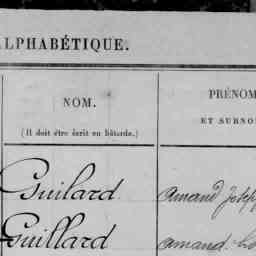 ALPHABÉTIQUE.
NOM.
(Il doit être écrit en bâtarde.)
PRÉNOM
ET SURNO
Guilard
Amand Josep
Guillard
amand.